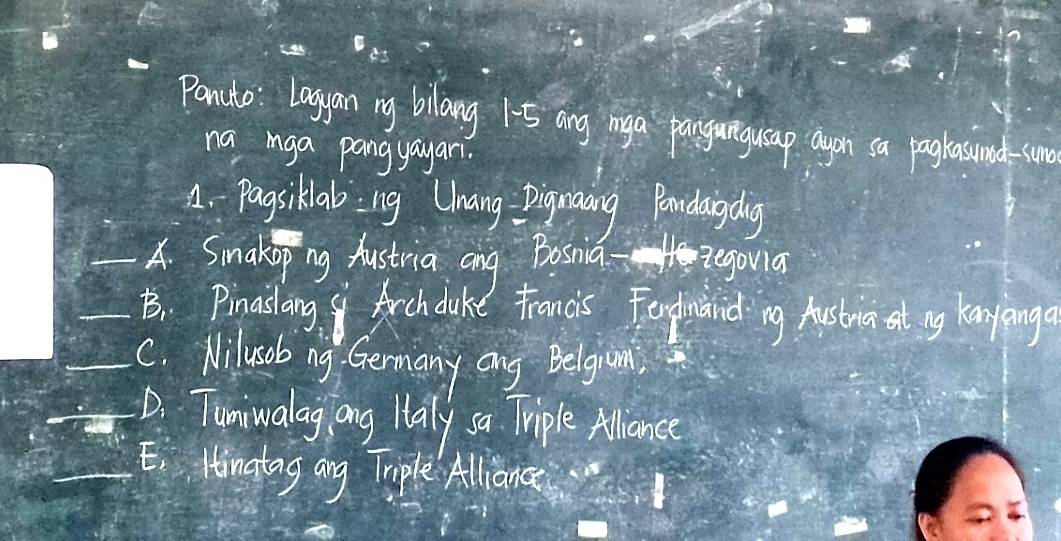 Panuto: Lagyan ng bilang 1-5 ang mga pangungusap ayon sa pagkasunod-suno
na mga pangyayari.
1. Pagsiklab ng Unang Digmaang Pandaigdig
__ A. Sinakop ng Austria ang Bosnia- Hezegovia
__ B. Pinaslang si Archduke Francis Ferdinand ng Austria at ng kanyang a
__ C. Nilusob ng Germany ang Belgium,
__ D. Tumiwalag ang Italy sa Triple Alliance
__ E. Itinatag ang Triple Alliance